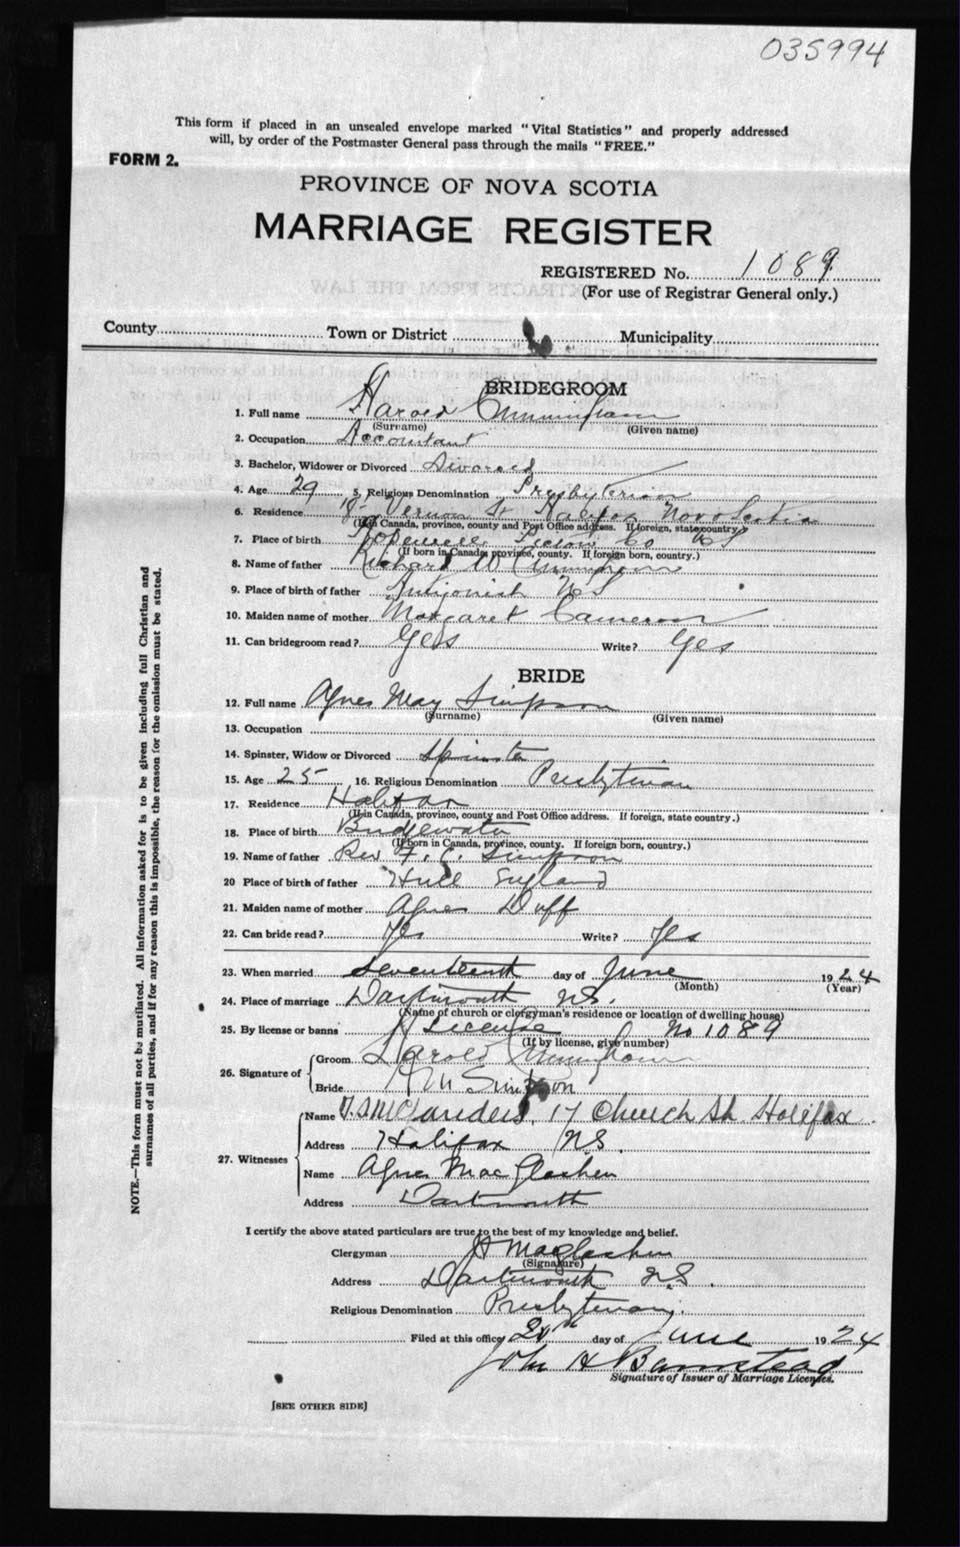 035994
This form if placed in an unsealed envelope marked "Vital Statistics" and properly addressed
will, by order of the Postmaster General pass through the mails "FREE."
FORM 2.
PROVINCE OF NOVA SCOTIA
MARRIAGE REGISTER
REGISTERED No. 1089
(For use of Registrar General only.)
County Town or District Municipality
BRIDEGROOM
1. Full name Harold Cunningham
(Surname) (Given name)
2. Occupation Accountant
3. Bachelor, Widower or Divorced Divorced
4. Age 29 5. Religious Denomination Presbyterian
6. Residence Vernon St Halifax Nova Scotia
(If in Canada, province, county and Post Office address. If foreign, state country.)
7. Place of birth Hopewell Pictou Co NS
(If born in Canada, province, county. If foreign born, country.)
8. Name of father Richard W Cunningham
9. Place of birth of father Antigonish NS
10. Maiden name of mother Margaret Cameron
11. Can bridegroom read? Yes Write? Yes
BRIDE
12. Full name Agnes May Simpson
(Surname) (Given name)
13. Occupation
14. Spinster, Widow or Divorced Spinster
15. Age 25 16. Religious Denomination Presbyterian
17. Residence Halifax
(If in Canada, province, county and Post Office address. If foreign, state country.)
18. Place of birth Bridgewater
(If born in Canada, province, county. If foreign born, country.)
19. Name of father Rev F. C. Simpson
20 Place of birth of father Hull England
21. Maiden name of mother Agnes Duff
22. Can bride read? Yes Write? Yes
23. When married Seventeenth day of June 1924
(Month) (Year)
24. Place of marriage Dartmouth N.S.
(Name of church or clergyman's residence or location of dwelling house)
25. By license or banns License No 1089
(If by license, give number)
26. Signature of Groom Harold Cunningham
Bride A M Simpson
27. Witnesses Name 17 Church St. Halifax
Address Halifax N.S.
Name Agnes MacGlashen
Address Dartmouth
I certify the above stated particulars are true to the best of my knowledge and belief.
Clergyman Macglashen
(Signature)
Address Dartmouth N.S.
Religious Denomination Presbyterian
Filed at this office 20th day of June 1924
John H Barnstead
Signature of Issuer of Marriage Licenses.
[SEE OTHER SIDE]
NOTE.—This form must not be mutilated. All information asked for is to be given including full Christian and
surnames of all parties, and if for any reason this is impossible, the reason for the omission must be stated.